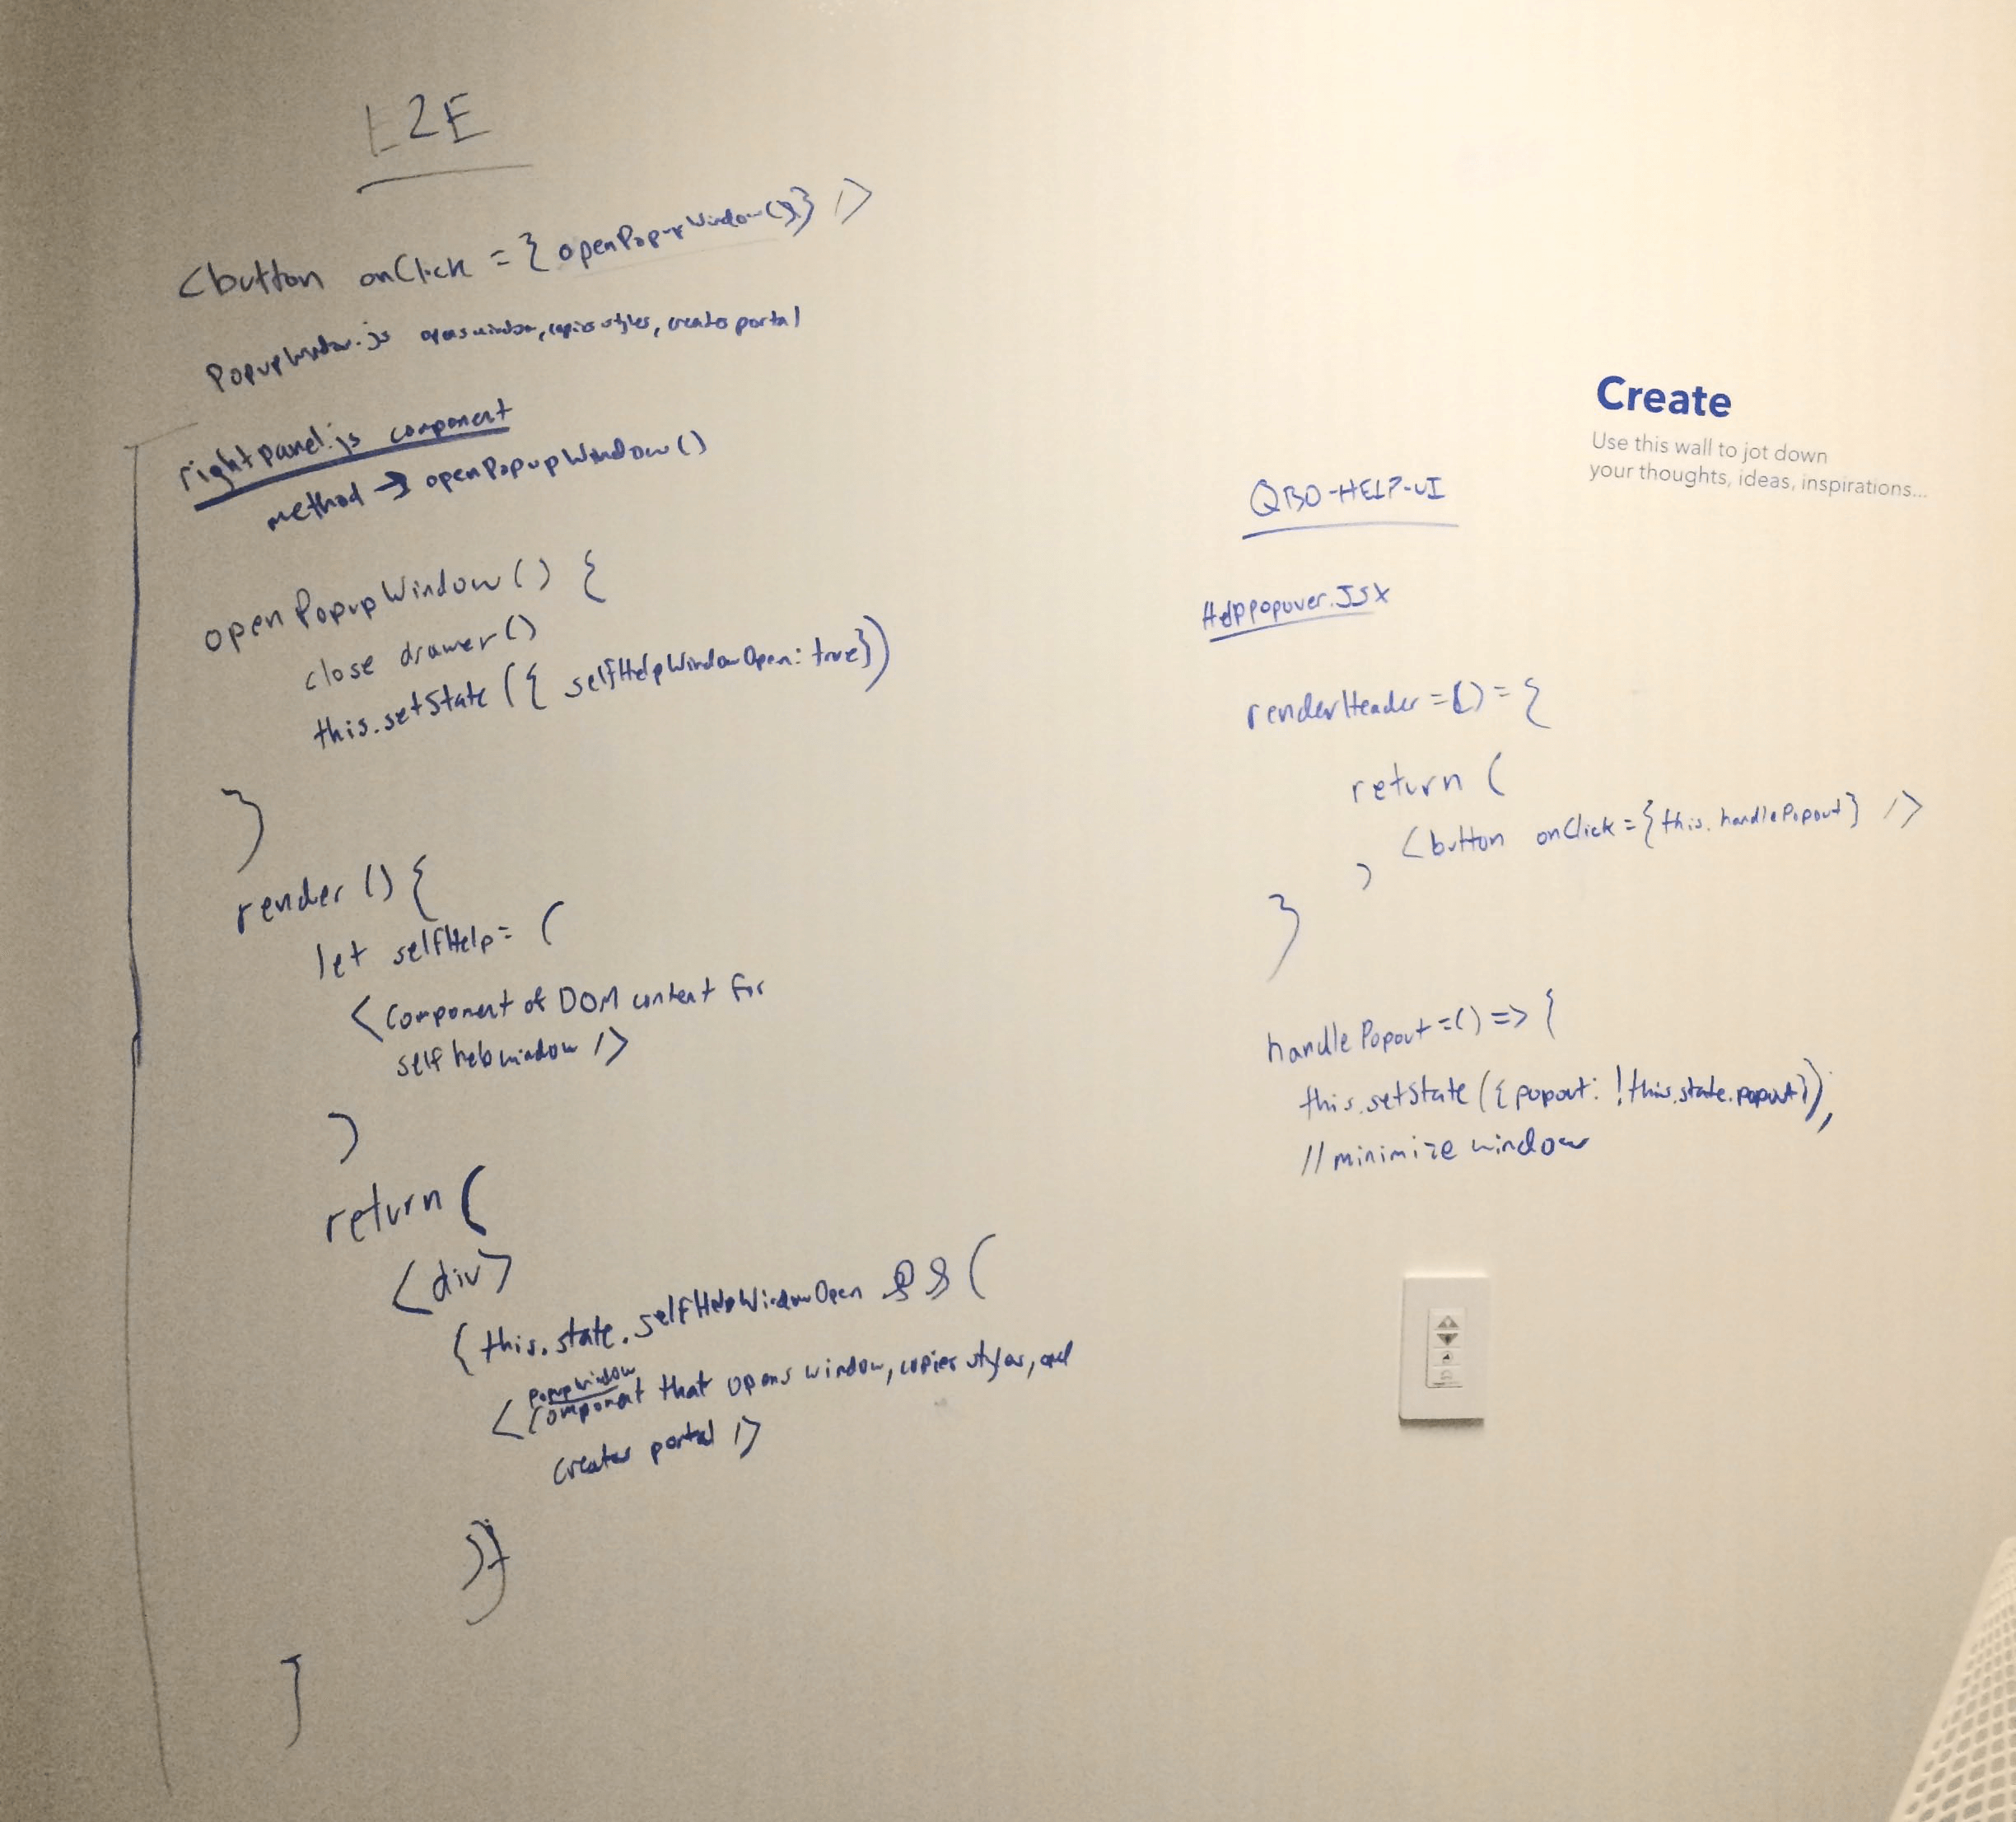 E2E
<button onClick = { openPopupWindow()} />
PopupWindow.js opens window, copies styles, creates portal
rightpanel.js component
method → openPopupWindow()
openPopupWindow() {
close drawer()
this.setState({ selfHelpWindowOpen: true})
}
render () {
let selfHelp = (
<component of DOM content for
self help window />
)
return (
<div>
{ this.state.selfHelpWindowOpen && (
PopupWindow
<component that opens window, copies styles, and
creates portal />
)}
}
Create
Use this wall to jot down
your thoughts, ideas, inspirations...
QBO-HELP-UI
HelpPopover.JSX
renderHeader = () = {
return (
<button onClick = {this.handlePopout} />
)
}
handlePopout = () => {
this.setState({popout: !this.state.popout});
// minimize window